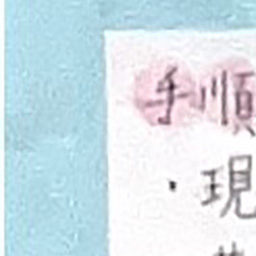 手順
・現